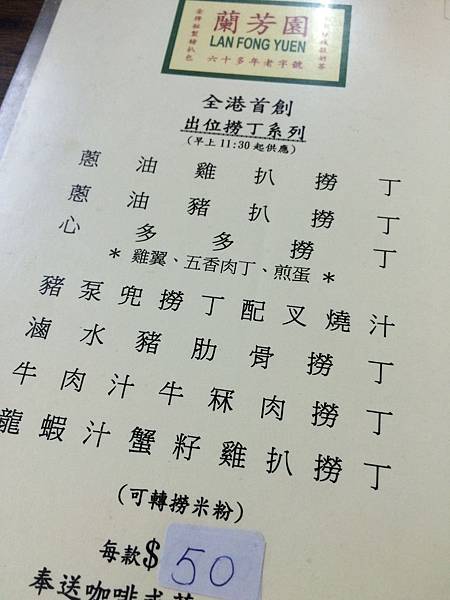 蘭芳園
LAN FONG YUEN
六十多年老字號
金牌秘製豬扒包
全港首創
出位撈丁系列
(早上 11:30 起供應)
蔥油雞扒撈丁
蔥油豬扒撈丁
心多多撈丁
* 雞翼、五香肉丁、煎蛋 *
豬泵兜撈丁配叉燒汁
滷水豬肋骨撈丁
牛肉汁牛冧肉撈丁
龍蝦汁蟹籽雞扒撈丁
(可轉撈米粉)
每款$ 50
奉送咖啡或